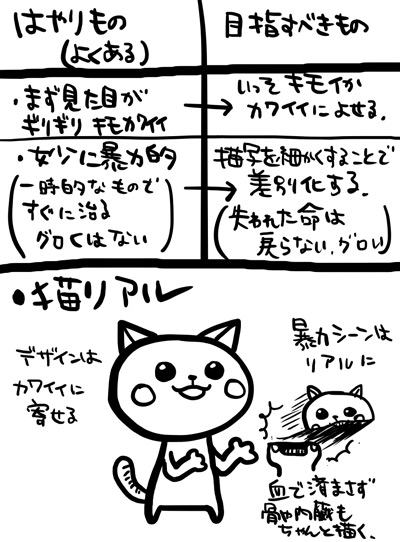 はやりもの
(よくある)
目指すべきもの
・まず見た目が
ギリギリ キモカワイイ
いっそ キモイか
カワイイによせる。
・妙に暴力的
(一時的なもので
すぐに治る
グロくはない)
描写を細かくすることで
差別化する。
(失われた命は
戻らない、グロい)
・猫リアル
デザインは
カワイイに
寄せる
暴力シーンは
リアルに
血で済まさず
骨や内臓も
ちゃんと描く。